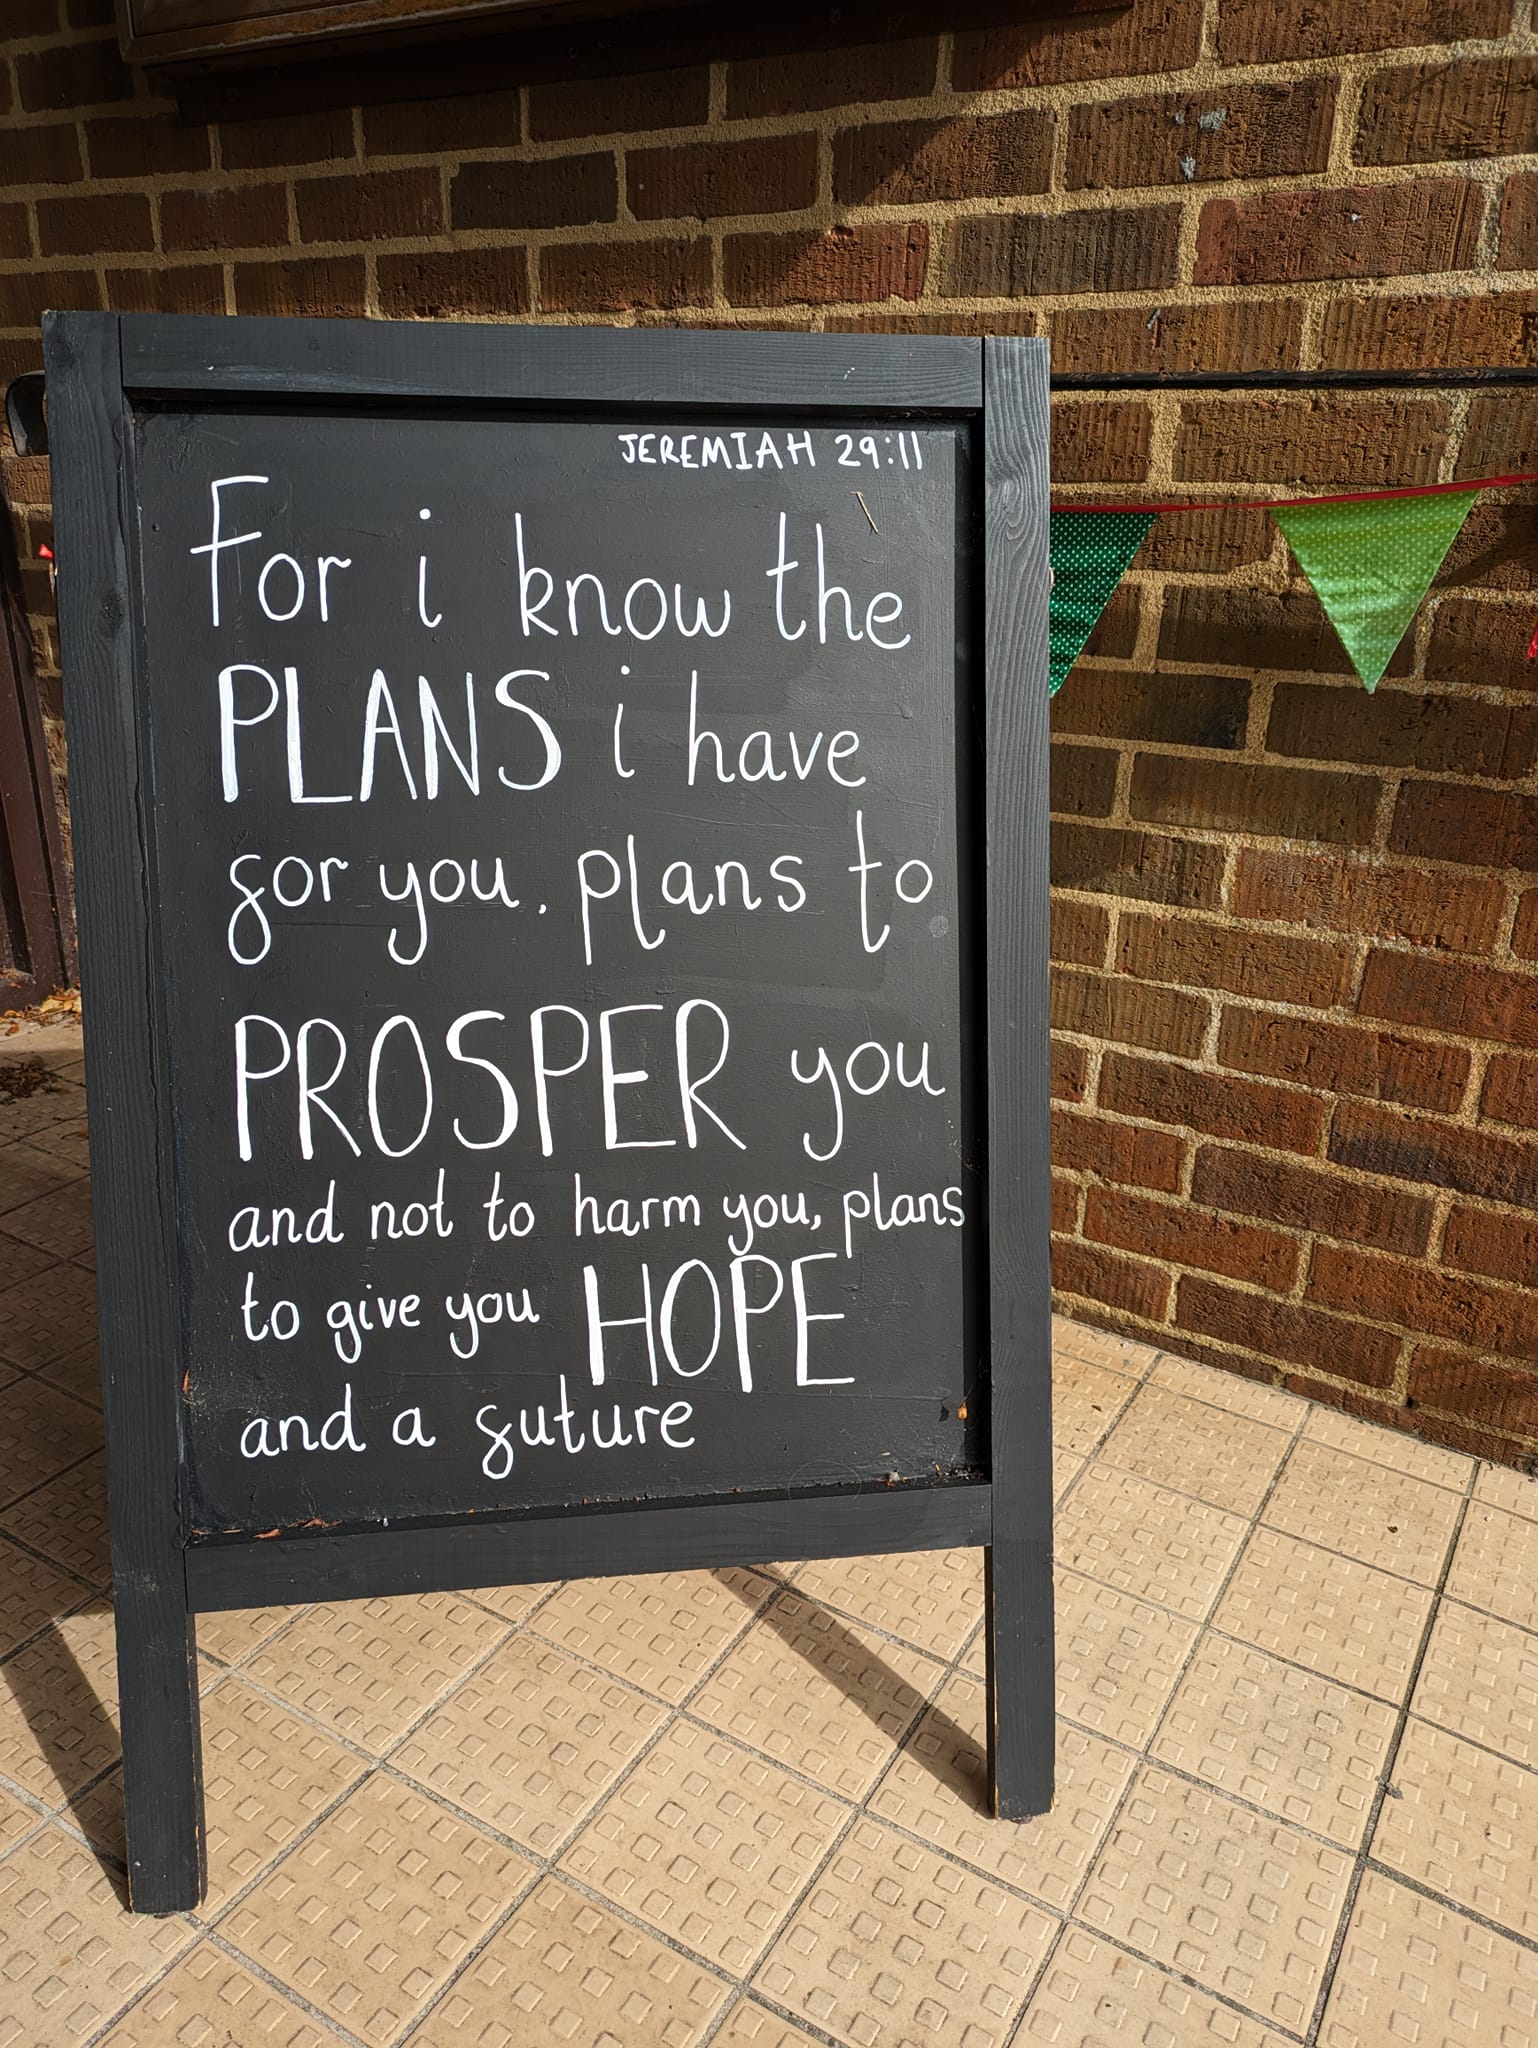 JEREMIAH 29:11
For i know the
PLANS i have
for you. plans to
PROSPER you
and not to harm you, plans
to give you HOPE
and a future